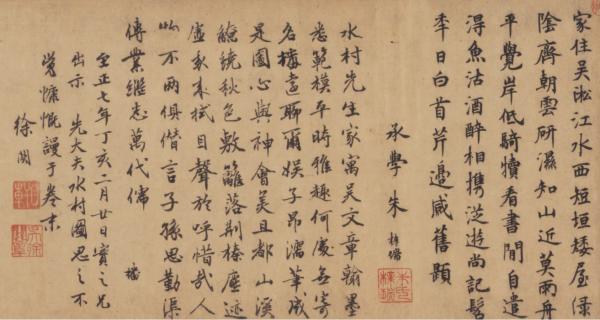 家住吳淞江水西短垣矮屋綠
陰齊朝雲研濕知山近莫雨舟
平覺岸低騎犢看書閒自遣
得魚沽酒醉相攜從遊尚記髫
年日白首芹邊感舊題
承學朱
水村先生家寓吳文章翰墨
悉範模平時雅趣何處無寄
名聊爾娛子昂濡筆成
是圖心與神會美且都山溪
繞秋色敷籬落荆榛塵迹
虛我來拭目聲於呼惜哉人
此不兩俱僭言子孫思勤渠
傳業繼志萬代儒
至正七年丁亥二月廿日實之兄
出示 先大夫水村圖思之不
覺慷慨謾于卷末
徐関